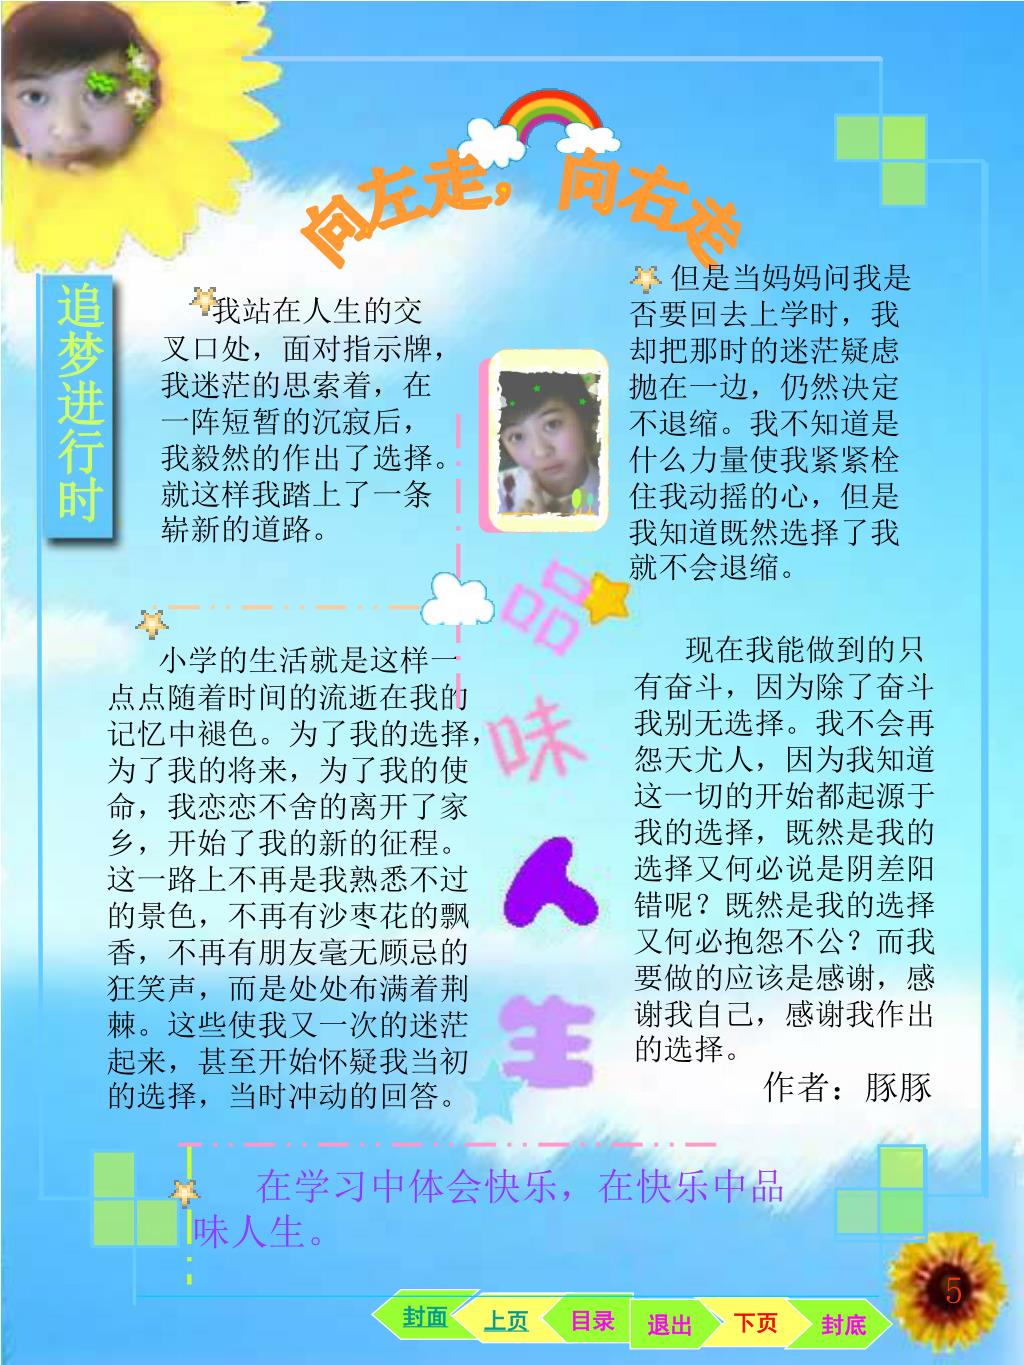 向左走，向右走
追梦进行时
我站在人生的交
叉口处，面对指示牌，
我迷茫的思索着，在
一阵短暂的沉寂后，
我毅然的作出了选择。
就这样我踏上了一条
崭新的道路。
小学的生活就是这样一
点点随着时间的流逝在我的
记忆中褪色。为了我的选择，
为了我的将来，为了我的使
命，我恋恋不舍的离开了家
乡，开始了我的新的征程。
这一路上不再是我熟悉不过
的景色，不再有沙枣花的飘
香，不再有朋友毫无顾忌的
狂笑声，而是处处布满着荆
棘。这些使我又一次的迷茫
起来，甚至开始怀疑我当初
的选择，当时冲动的回答。
品
味
人
生
但是当妈妈问我是
否要回去上学时，我
却把那时的迷茫疑虑
抛在一边，仍然决定
不退缩。我不知道是
什么力量使我紧紧栓
住我动摇的心，但是
我知道既然选择了我
就不会退缩。
现在我能做到的只
有奋斗，因为除了奋斗
我别无选择。我不会再
怨天尤人，因为我知道
这一切的开始都起源于
我的选择，既然是我的
选择又何必说是阴差阳
错呢？既然是我的选择
又何必抱怨不公？而我
要做的应该是感谢，感
谢我自己，感谢我作出
的选择。
作者：豚豚
在学习中体会快乐，在快乐中品
味人生。
5
封面 上页 目录 退出 下页 封底